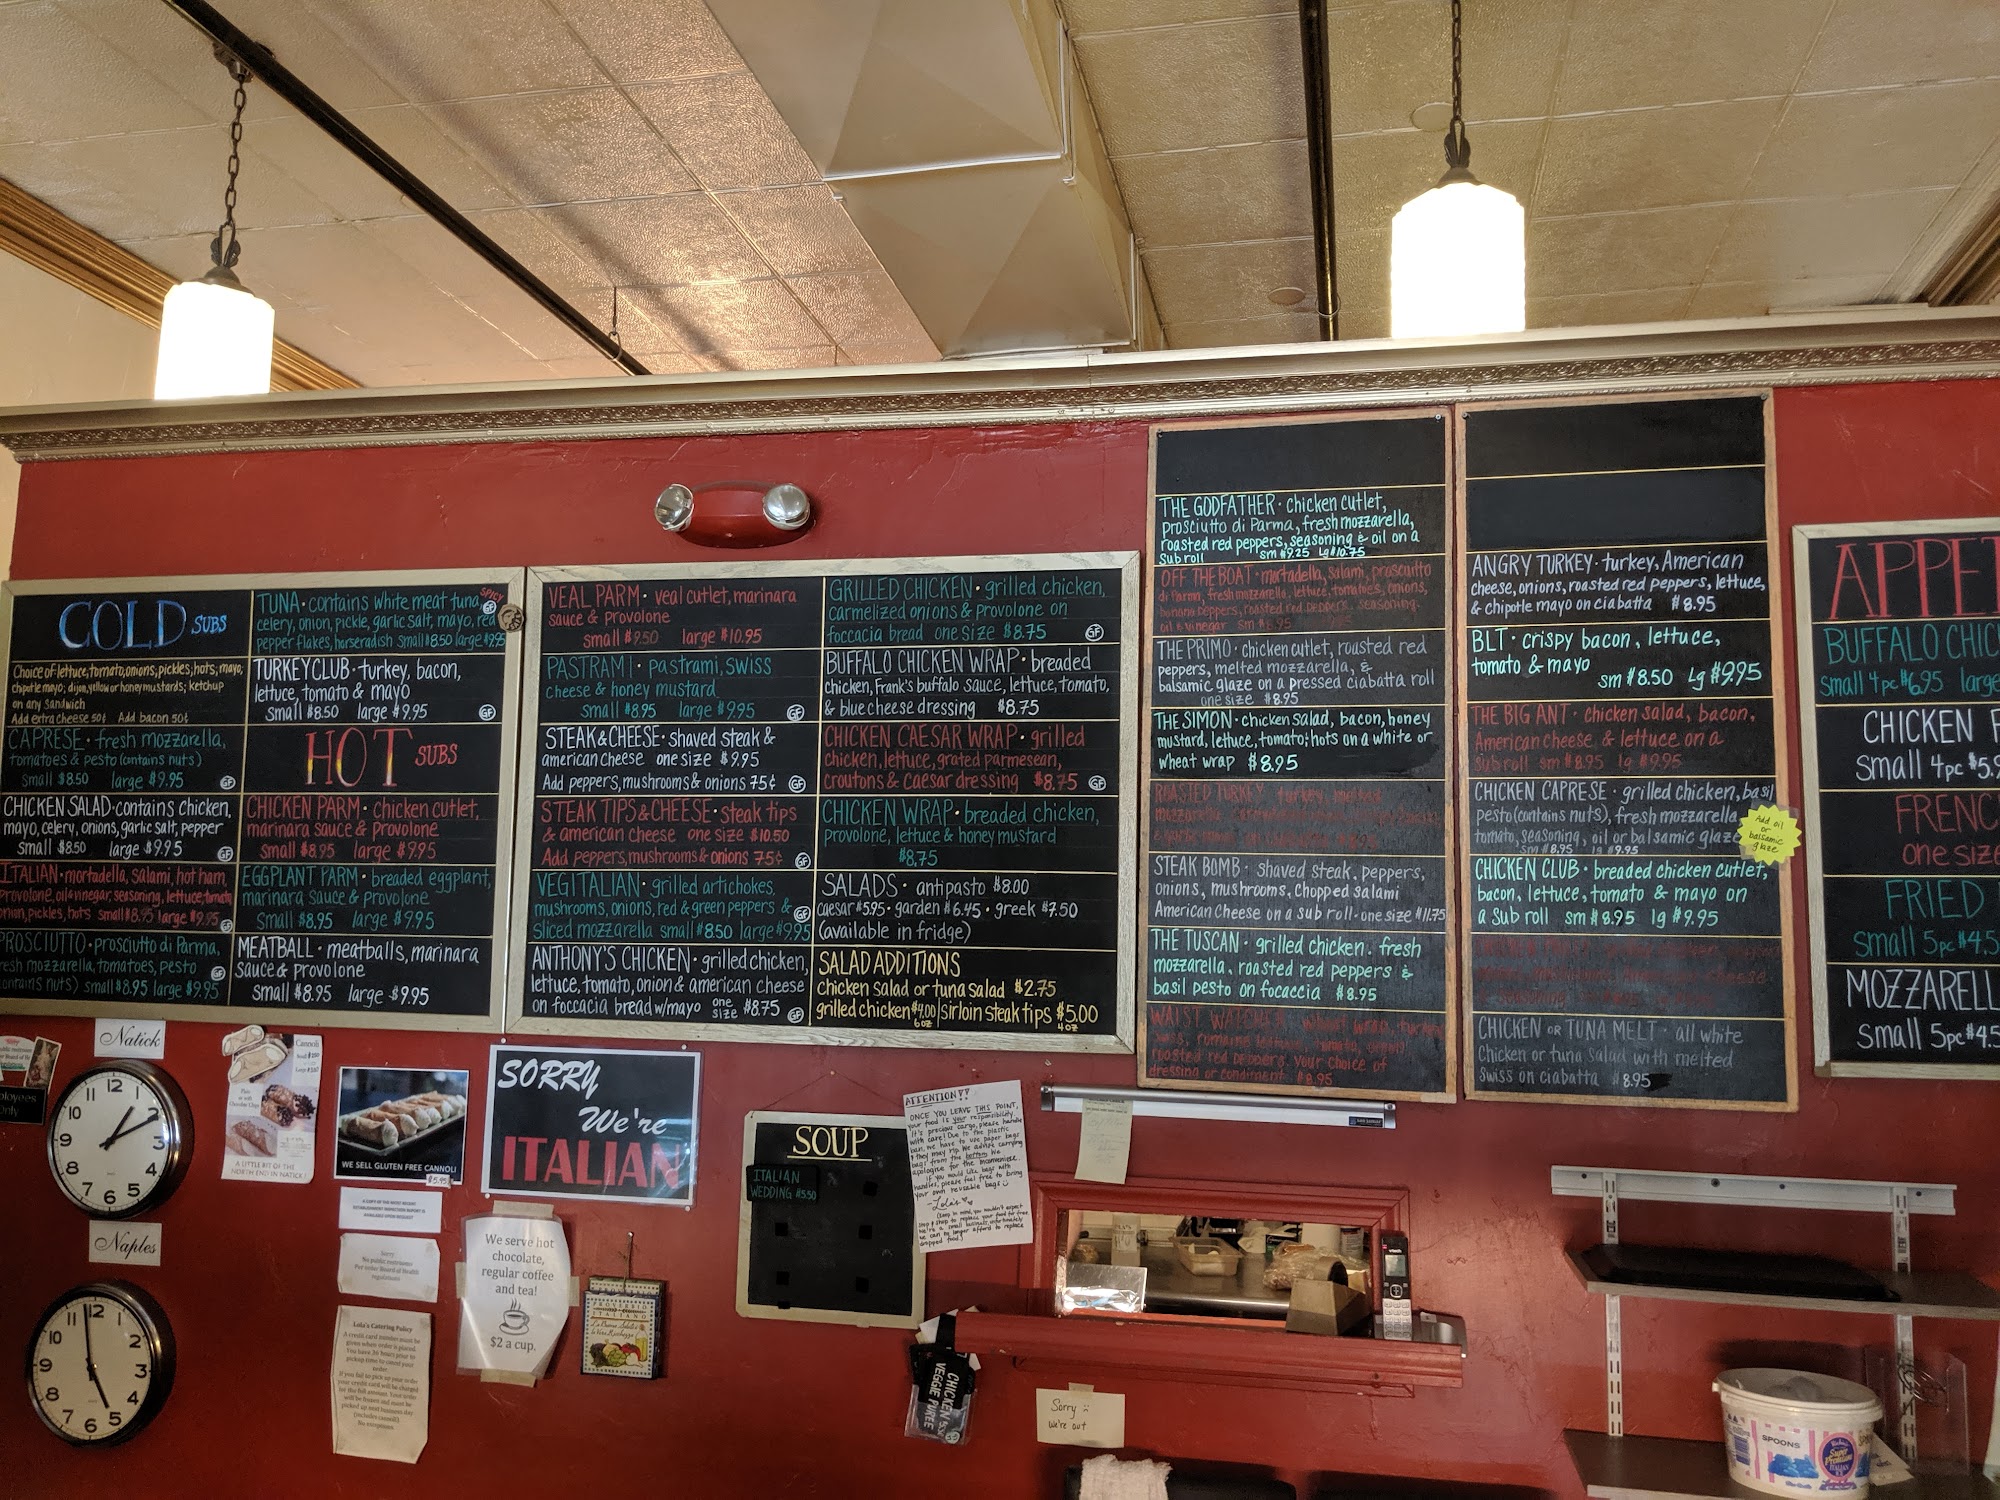 COLD SUBS
Choice of lettuce, tomato, onions, pickles; hots, mayo,
chipotle mayo; dijon, yellow or honey mustards; ketchup
on any sandwich
Add extra cheese 50¢ Add bacon 50¢
CAPRESE · fresh mozzarella,
tomatoes & pesto (contains nuts)
small $8.50 large $9.95
GF
CHICKEN SALAD · contains chicken,
mayo, celery, onions, garlic salt, pepper
small $8.50 large $9.95
GF
ITALIAN · mortadella, salami, hot ham,
provolone, oil & vinegar, seasoning, lettuce, tomato
onion, pickles, hots small $8.95 large $9.95
GF
PROSCIUTTO · prosciutto di Parma,
fresh mozzarella, tomatoes, pesto
(contains nuts) small $8.95 large $9.95
GF
TUNA · contains white meat tuna,
SPICY
GF
celery, onion, pickle, garlic salt, mayo, red
pepper flakes, horseradish small $8.50 large $9.95
TURKEY CLUB · turkey, bacon,
lettuce, tomato & mayo
small $8.50 large $9.95
GF
HOT SUBS
CHICKEN PARM · chicken cutlet,
marinara sauce & provolone
small $8.95 large $9.95
EGGPLANT PARM · breaded eggplant,
marinara sauce & provolone
small $8.95 large $9.95
MEATBALL · meatballs, marinara
sauce & provolone
small $8.95 large $9.95
VEAL PARM · veal cutlet, marinara
sauce & provolone
small $9.50 large $10.95
PASTRAMI · pastrami, swiss
cheese & honey mustard
small $8.95 large $9.95
GF
STEAK & CHEESE · shaved steak &
american cheese one size $9.95
Add peppers, mushrooms & onions 75¢
GF
STEAK TIPS & CHEESE · steak tips
& american cheese one size $10.50
Add peppers, mushrooms & onions 75¢
GF
VEGITALIAN · grilled artichokes,
mushrooms, onions, red & green peppers &
sliced mozzarella small $8.50 large $9.95
GF
ANTHONY'S CHICKEN · grilled chicken,
lettuce, tomato, onion & american cheese
on foccacia bread w/mayo one size $8.75
GF
GRILLED CHICKEN · grilled chicken,
carmelized onions & provolone on
foccacia bread one size $8.75
GF
BUFFALO CHICKEN WRAP · breaded
chicken, Frank's buffalo sauce, lettuce, tomato,
& blue cheese dressing $8.75
CHICKEN CAESAR WRAP · grilled
chicken, lettuce, grated parmesean,
croutons & caesar dressing $8.75
GF
CHICKEN WRAP · breaded chicken,
provolone, lettuce & honey mustard
$8.75
SALADS · antipasto $8.00
caesar $5.95 · garden $6.45 · greek $7.50
(available in fridge)
SALAD ADDITIONS
chicken salad or tuna salad $2.75
grilled chicken $4.00 | sirloin steak tips $5.00
6oz 4oz
THE GODFATHER · chicken cutlet,
prosciutto di Parma, fresh mozzarella,
roasted red peppers, seasoning & oil on a
sub roll sm $9.25 Lg $10.75
OFF THE BOAT · mortadella, salami, prosciutto
di Parma, fresh mozzarella, lettuce, tomatoes, onions,
banana peppers, roasted red peppers, seasoning,
oil & vinegar sm $8.95
THE PRIMO · chicken cutlet, roasted red
peppers, melted mozzarella, &
balsamic glaze on a pressed ciabatta roll
one size $8.95
THE SIMON · chicken salad, bacon, honey
mustard, lettuce, tomato; hots on a white or
wheat wrap $8.95
ROASTED TURKEY · turkey, melted
mozzarella,
STEAK BOMB · shaved steak, peppers,
onions, mushrooms, chopped salami
American cheese on a sub roll - one size $11.75
THE TUSCAN · grilled chicken, fresh
mozzarella, roasted red peppers &
basil pesto on focaccia $8.95
WAIST WATCHER · wheat wrap, turkey
swiss, romaine lettuce, tomato,
roasted red peppers, your choice of
dressing or condiment $8.95
ANGRY TURKEY · turkey, American
cheese, onions, roasted red peppers, lettuce,
& chipotle mayo on ciabatta $8.95
BLT · crispy bacon, lettuce,
tomato & mayo
sm $8.50 Lg $9.95
THE BIG ANT · chicken salad, bacon,
American cheese & lettuce on a
sub roll sm $8.95 lg $9.95
CHICKEN CAPRESE · grilled chicken, basil
pesto (contains nuts), fresh mozzarella
tomato, seasoning, oil or balsamic glaze
sm $8.95 lg $9.95
Add oil
or
balsamic
glaze
CHICKEN CLUB · breaded chicken cutlet,
bacon, lettuce, tomato & mayo on
a sub roll sm $8.95 lg $9.95
CHICKEN OR TUNA MELT · all white
chicken or tuna salad with melted
swiss on ciabatta $8.95
APPE
BUFFALO CHIC
small 4pc $6.95 large
CHICKEN F
small 4pc $5.9
FRENC
one size
FRIED
small 5pc $4.5
MOZZARELL
small 5pc $4.5
Natick
12 1 2 3 4 5 6 7 8 9 10 11
Naples
12 1 2 3 4 5 6 7 8 9 10 11
Only
Cannoli
A LITTLE BIT OF THE
NORTH END IN NATICK!
WE SELL GLUTEN FREE CANNOLI
$5.95
SORRY
We're
ITALIAN
A COPY OF THE MOST RECENT
ESTABLISHMENT INSPECTION REPORT IS
AVAILABLE UPON REQUEST
Sorry
No public restrooms
Per order Board of Health
regulations
Lola's Catering Policy
A credit card number must be
given when order is placed.
You have 36 hours prior to
pickup time to cancel your
order.
If you fail to pick up your order
your credit card will be charged
for the full amount. Your order
will be frozen and must be
picked up next business day
(includes cannoli)
No exceptions.
We serve hot
chocolate,
regular coffee
and tea!
$2 a cup.
PROVERBIO
ITALIANO
SOUP
ITALIAN
WEDDING $5.50
ATTENTION!!
ONCE YOU LEAVE THIS POINT,
your food is your responsibility.
It's precious cargo, please handle
with care! Due to the plastic
ban, we have to use paper bags
& they may rip. We advise carrying
bags from the bottom. We
apologize for the inconvenience.
If you would like bags with
handles, please feel free to bring
your own reusable bags
-Lola's
(Keep in mind, you wouldn't expect
Stop & Shop to replace your food for free.
We're a small business, unfortunately
we can no longer afford to replace
dropped food.)
CHICKEN &
VEGGIE PUREE
Sorry
we're out
vtech
SPOONS